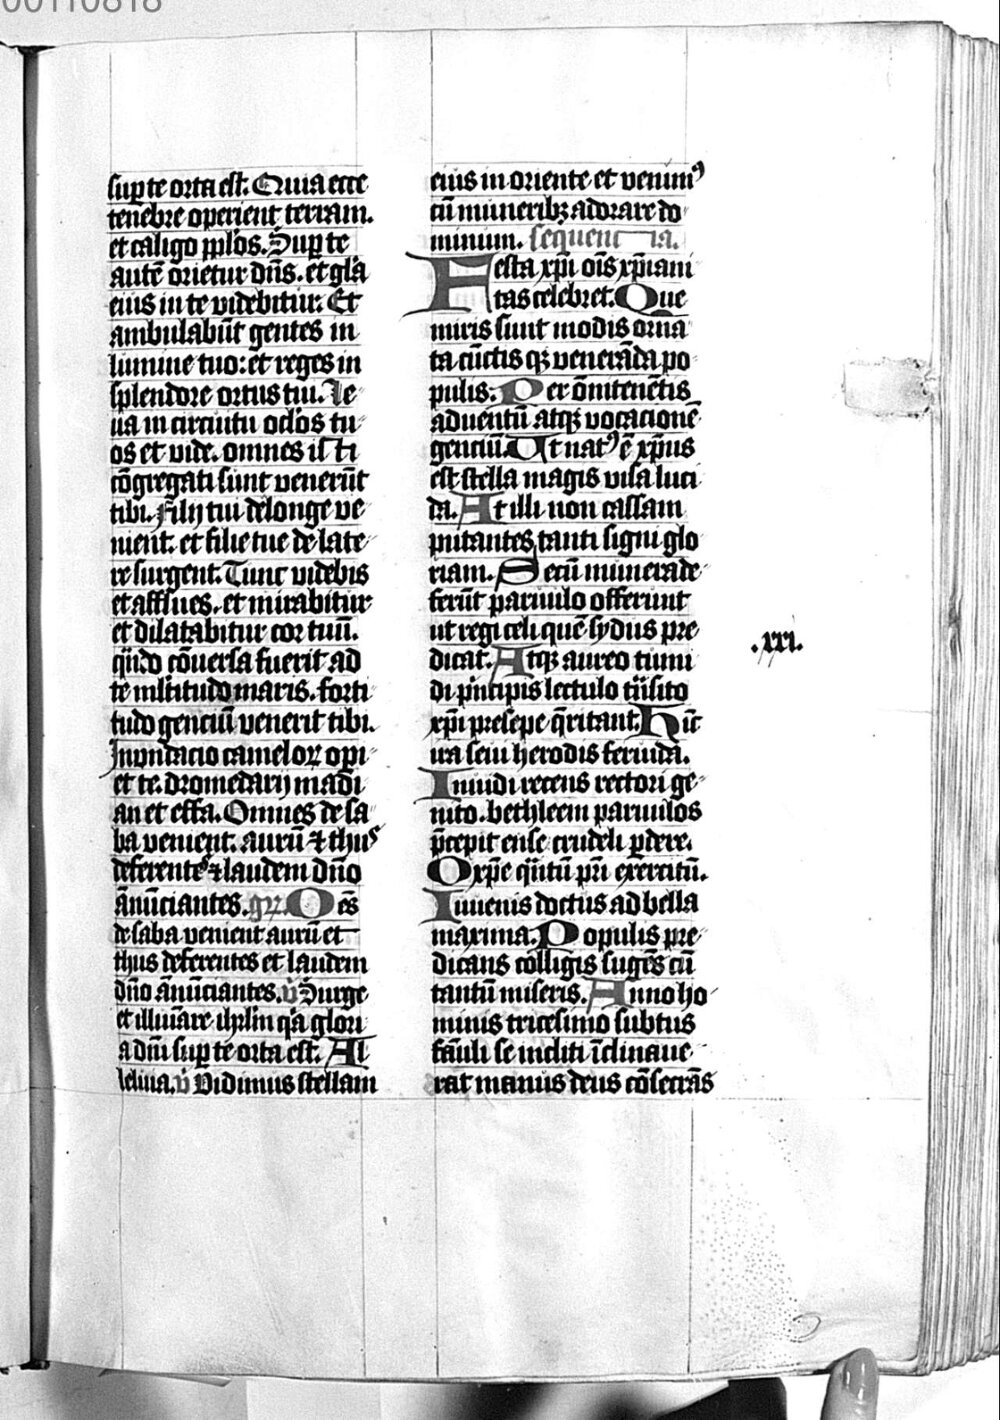 00110818
sup te orta est. Quia ecce
tenebre operient terram.
et caligo pplōs. Sup te
autē orietur dn̄s. et glā
eius in te videbitur. Et
ambulabūt gentes in
lumine tuo: et reges in
splendore ortus tui. Le
ua in circuitu oclōs tu
os et vide. omnes isti
cōgregati sunt venerūt
tibi. Filij tui delonge ve
nient. et filie tue de late
re surgent. Tunc videbis
et afflues. et mirabitur
et dilatabitur cor tuū.
qn̄do cōuersa fuerit ad
te ml̄titudo maris. forti
tudo genciū venerit tibi.
Inundacio cameloꝝ opi
et te. dromedarij madi
an et effa. Omnes de sa
ba venient. aurū ⁊ thus
deferentes ⁊ laudem dn̄o
ānūciantes. gꝛ. Oēs
de saba venient aurū et
thus deferentes et laudem
dn̄o ānūciantes. v̄ Surge
et illuīare ihrl̄m qā glori
a dn̄i sup te orta est. Al
leluia. v̄ Vidimus stellam
eius in oriente et venimꝰ
cū muneribꝫ adorare do
minum. sequencia.
Festa xp̄i oīs xp̄iani
tas celebret. Que
miris sunt modis orna
ta cūctis qꝫ venerāda po
pulis. Per ōnitenētis
aduentū atqꝫ vocacionē
genciū. Ut natꝰ ē xp̄us
est stella magis visa luci
da. At illi non cassam
putantes tanti signi glo
riam. Secū munera de
ferūt paruulo offerunt
ut regi celi quē sydus pre
dicat. Atqꝫ aureo tumi
di pn̄cipis lectulo trāsito
xp̄i presepe q̄ritant. Hīc
ira seui herodis feruida.
Inuidi recens rectori ge
nito. bethleem paruulos
p̄cepit ense crudeli ꝑdere.
O xp̄e qn̄tū pr̄i exercitū.
Iuuenis doctus ad bella
maxima. Populis pre
dicans colligis sugēs cū
tantū miseris. Anno ho
minis tricesimo subtus
fāuli se incliti īclinaue
rat manus deus cōsecrās
.xxi.